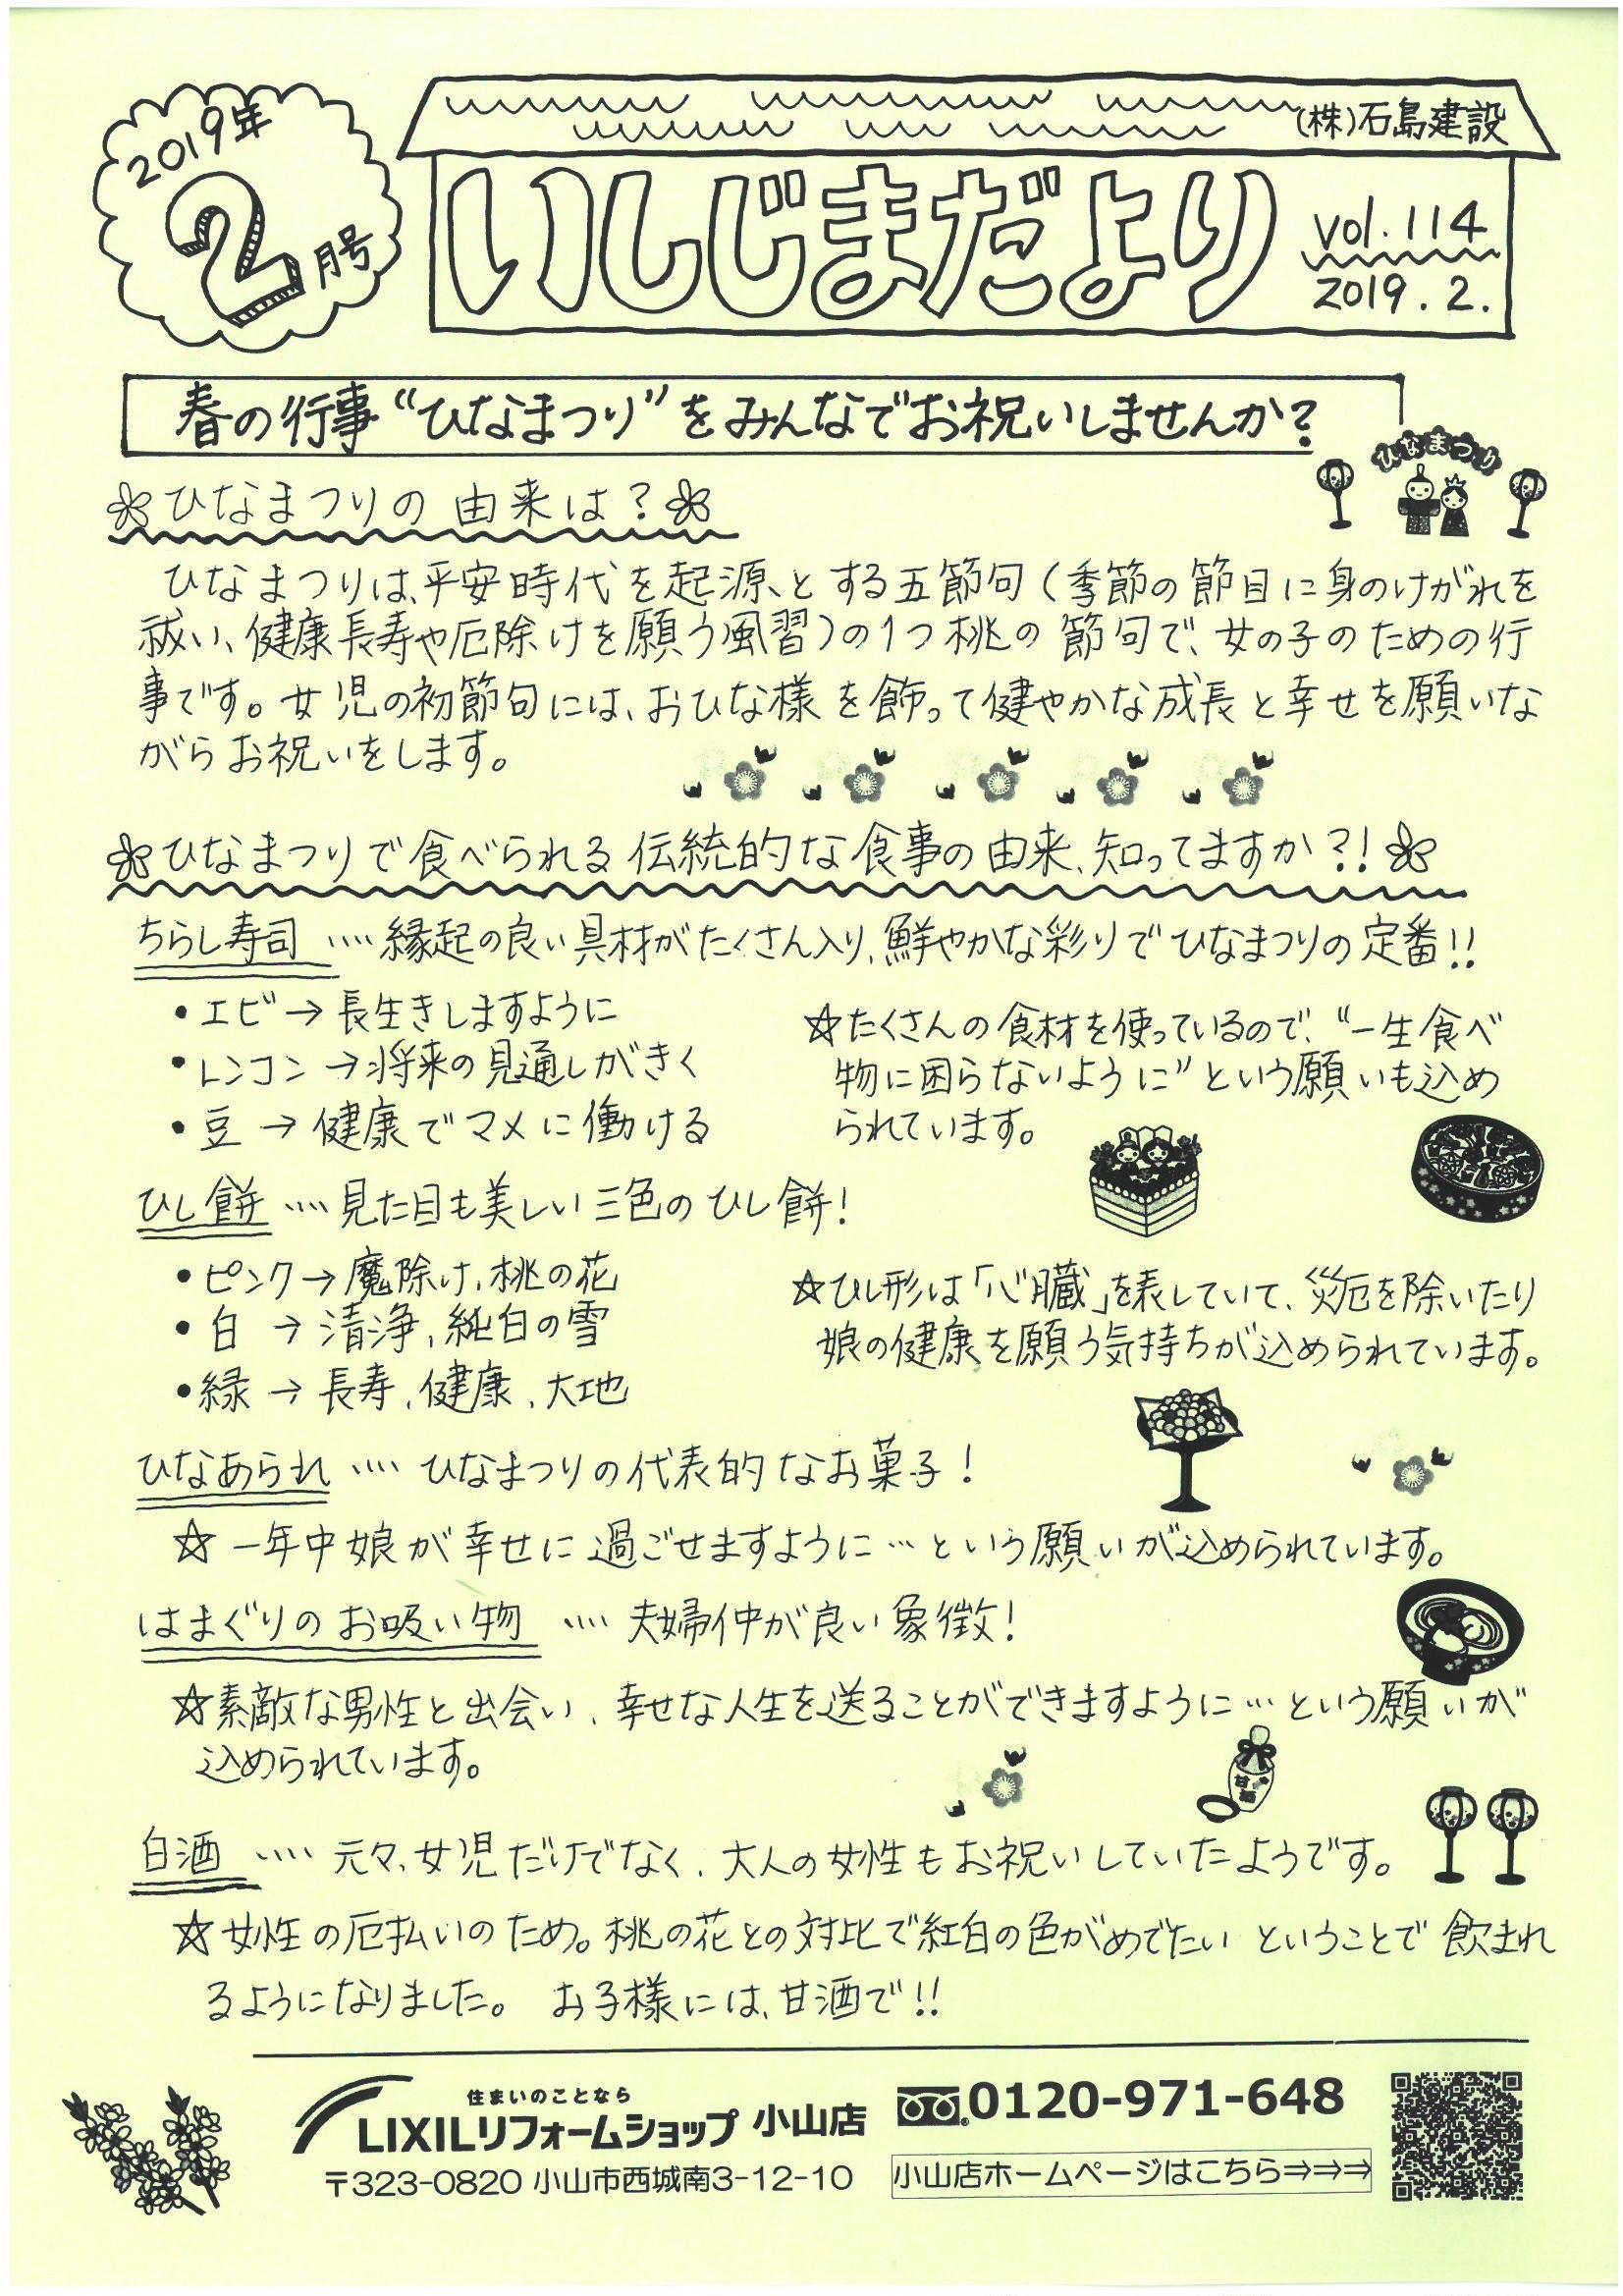 2019年
2月号
(株)石島建設
いしじまだより
vol.114
2019.2.
春の行事“ひなまつり”をみんなでお祝いしませんか?
ひなまつり
ひなまつりの由来は?
ひなまつりは、平安時代を起源とする五節句(季節の節目に身のけがれを
祓い、健康長寿や厄除けを願う風習)の1つ桃の節句で、女の子のための行
事です。女児の初節句には、おひな様を飾って健やかな成長と幸せを願いな
がらお祝いをします。
ひなまつりで食べられる伝統的な食事の由来、知ってますか?!
ちらし寿司 ‥‥縁起の良い具材がたくさん入り、鮮やかな彩りでひなまつりの定番!!
・エビ→長生きしますように
・レンコン→将来の見通しがきく
・豆→健康でマメに働ける
☆たくさんの食材を使っているので、“一生食べ
物に困らないように”という願いも込め
られています。
ひし餅 ‥‥見た目も美しい三色のひし餅!
・ピンク→魔除け、桃の花
・白 →清浄、純白の雪
・緑→長寿、健康、大地
☆ひし形は「心臓」を表していて、災厄を除いたり
娘の健康を願う気持ちが込められています。
ひなあられ ‥‥ ひなまつりの代表的なお菓子!
☆一年中娘が幸せに過ごせますように…という願いが込められています。
はまぐりのお吸い物 ‥‥ 夫婦仲が良い象徴!
☆素敵な男性と出会い、幸せな人生を送ることができますように…という願いが
込められています。
甘酒
白酒 ‥‥ 元々、女児だけでなく、大人の女性もお祝いしていたようです。
☆女性の厄払いのため。桃の花との対比で紅白の色がめでたいということで飲まれ
るようになりました。 お子様には、甘酒で!!
住まいのことなら
LIXILリフォームショップ 小山店
0120-971-648
〒323-0820 小山市西城南3-12-10
小山店ホームページはこちら⇒⇒⇒